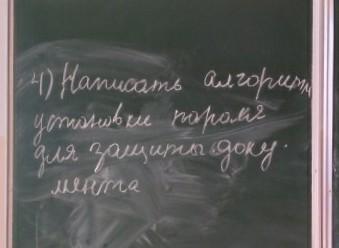 4) Написать алгоритм
установки пароля
для защиты доку-
мента